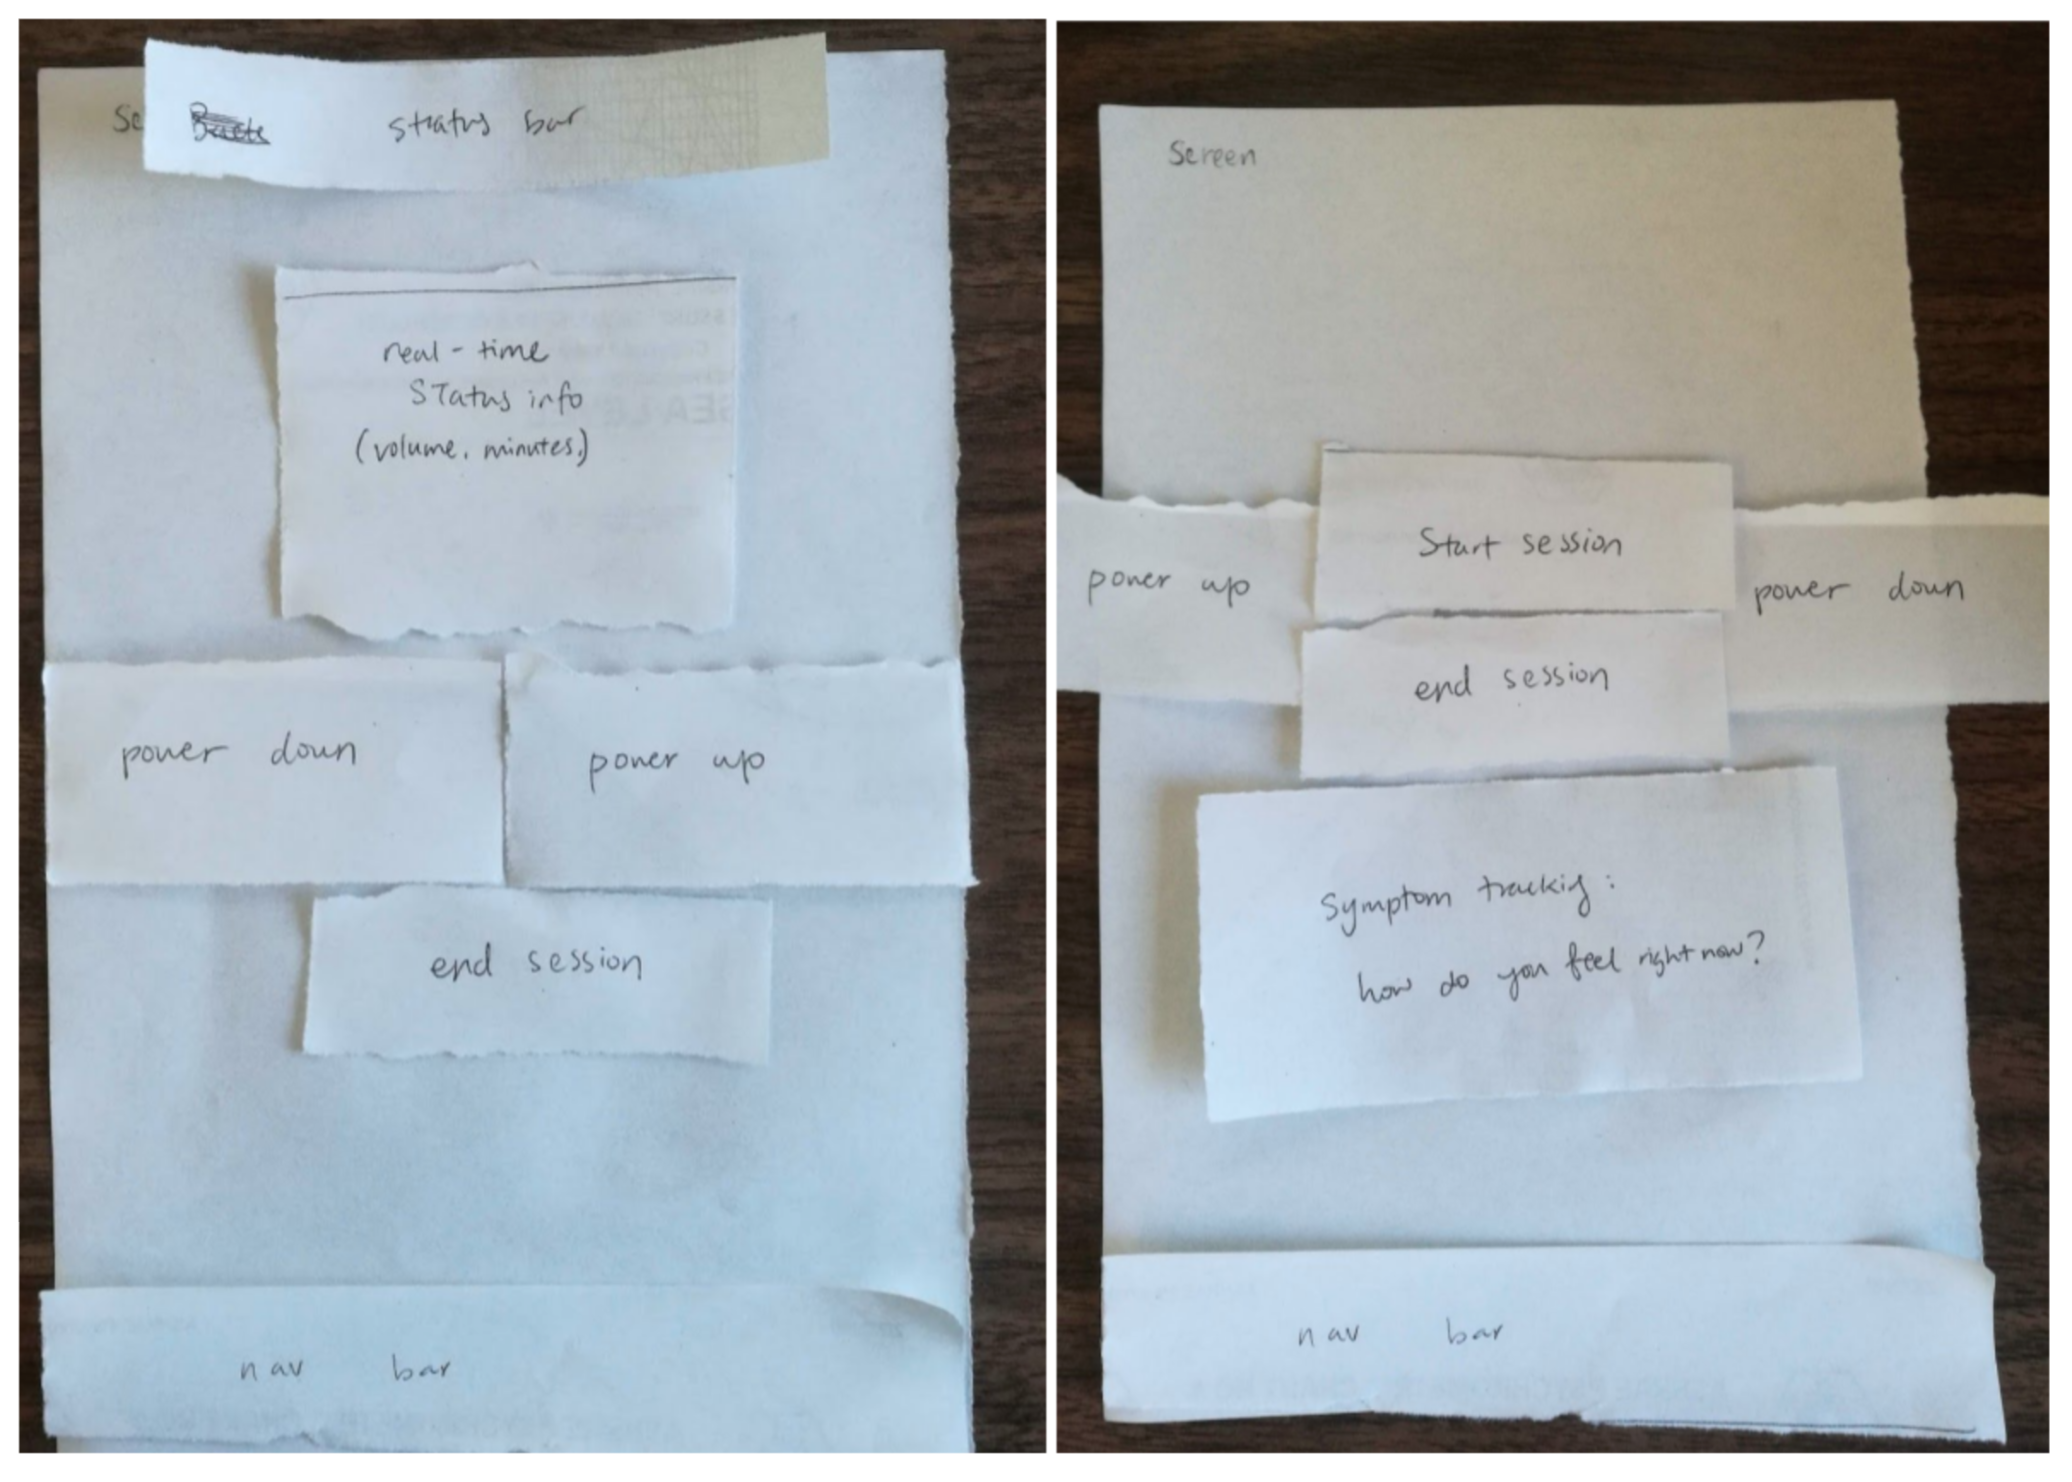 Sc
status bar
real-time
Status info
(volume, minutes,)
power down
power up
end session
nav bar
Screen
power up
Start session
power down
end session
Symptom trackig:
how do you feel right now?
nav bar